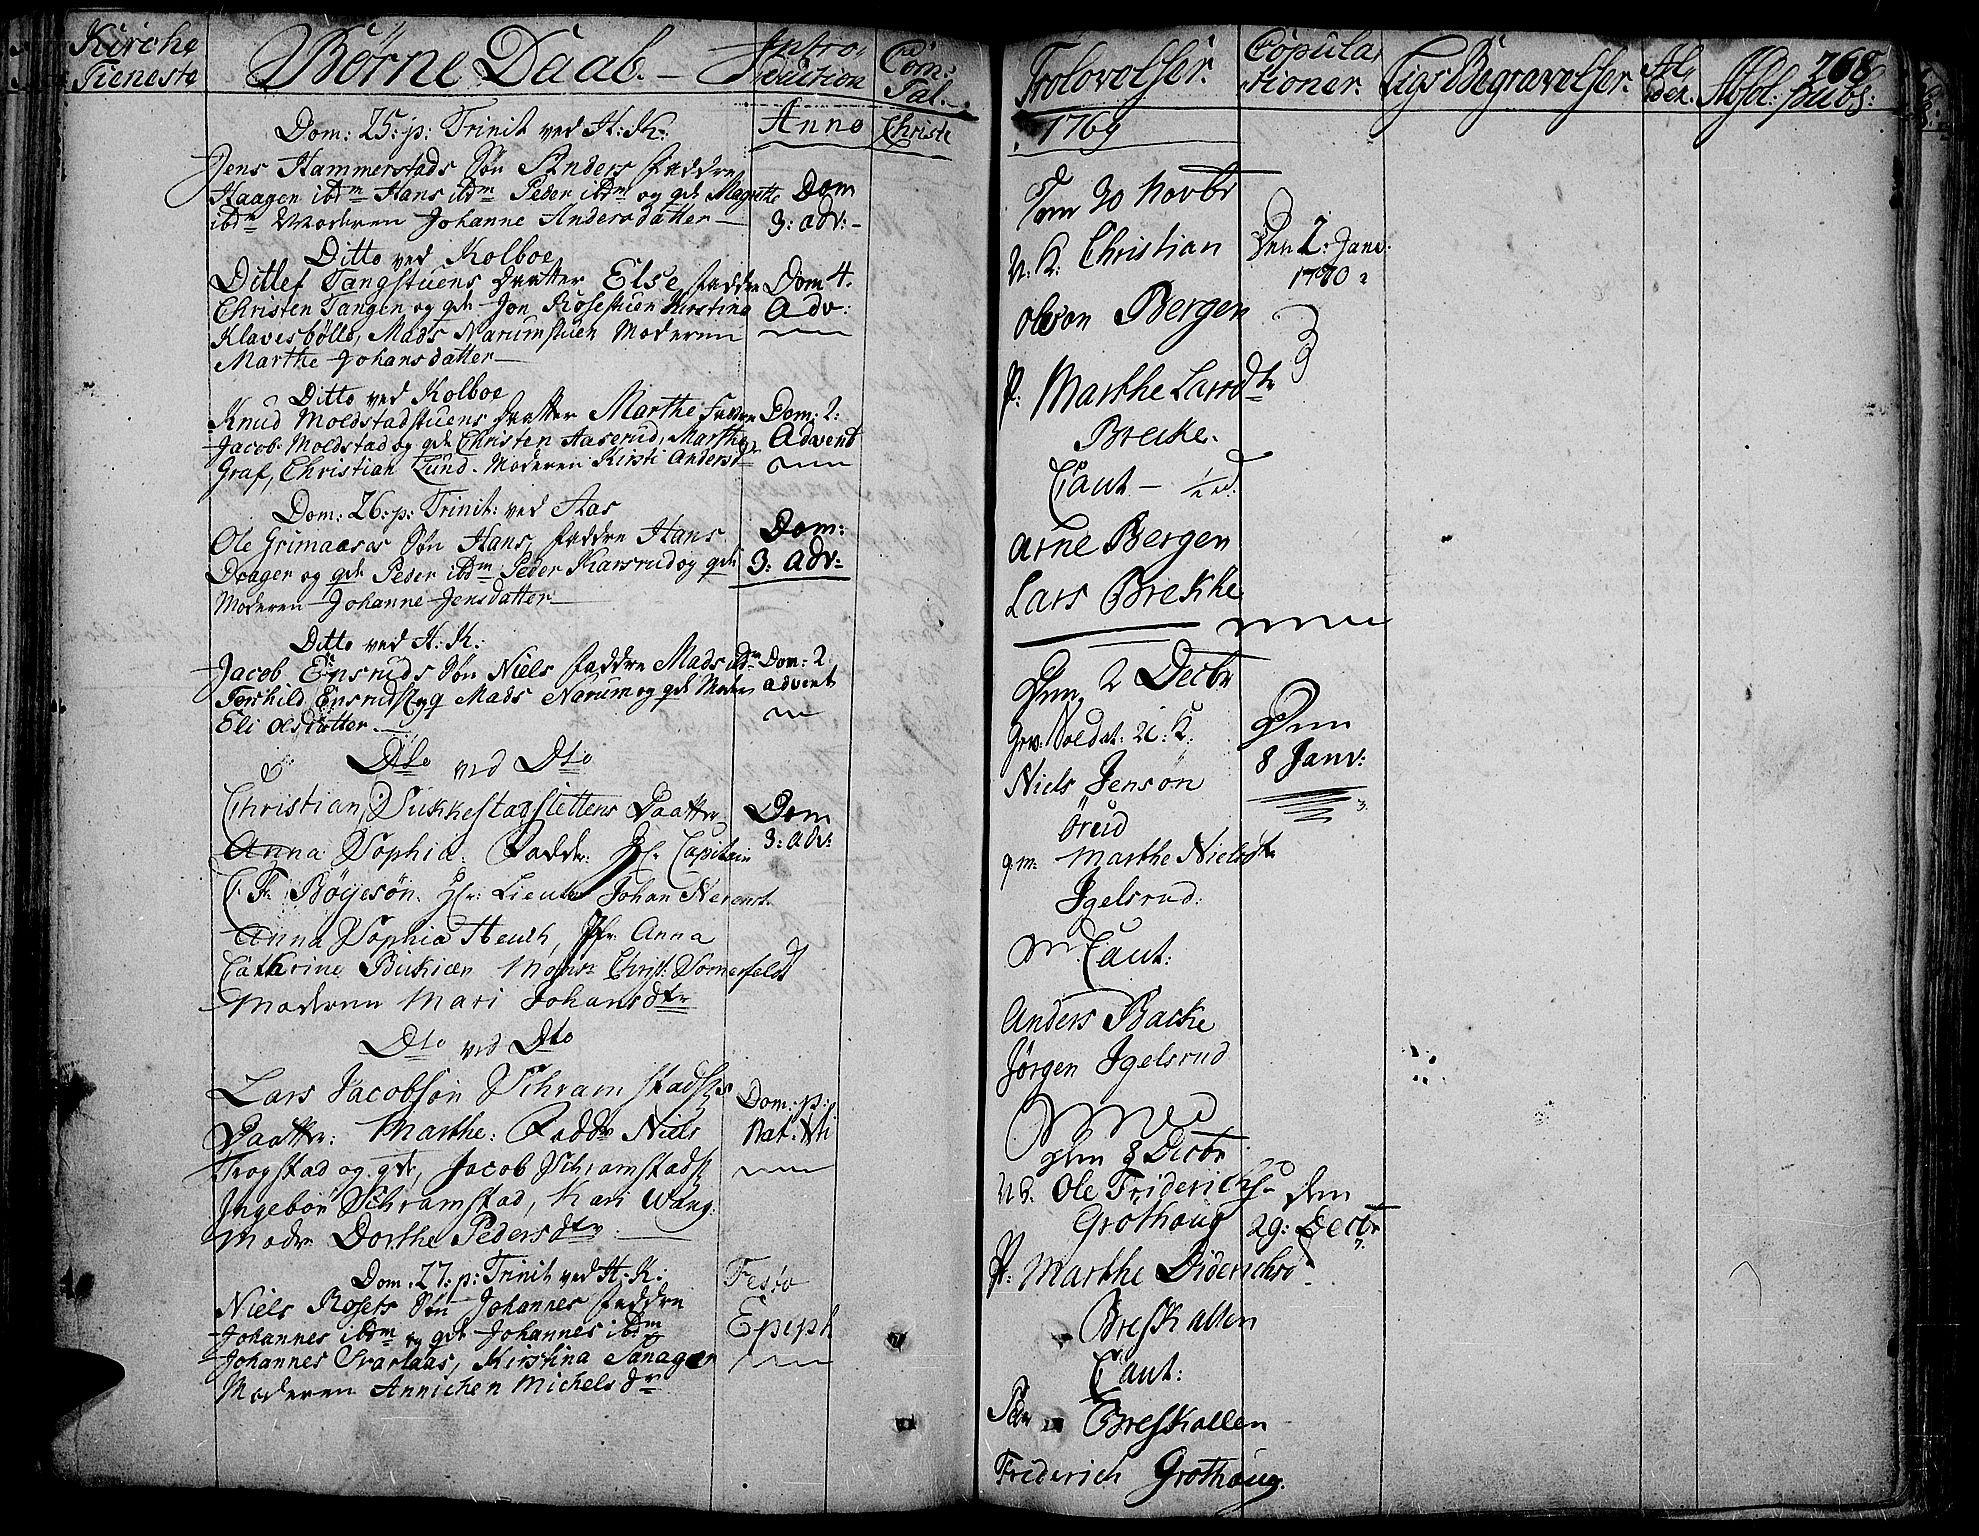 Kirche
Tieneste
Børne Daab. —
Intro-
duction
Com:
Pat.
Anno
Christi
Dom: 25: p: Trinit ved H: K:
Jens Hammerstads Søn Anders Faddre
Haagen ibdm Hans ibdm Peder ibdm og qde Magrethe
ibdm Moderen Johanne Andersdatter —
Dom
3: adv: -
Ditto ved Kolboe
Ditlef Tangstuens Daatter Else Faddre
Christen Tangen og qde Jon Rosestuen Kirstina
Klavesbølle, Mads Narumstuen Moderen
Marthe Johansdatter —
Dom 4.
Adv:
Ditto ved Kolboe
Knud Moldstadstuens Daatter Marthe Faddre
Jacob Moldstad og qde Christen Aaserud, Marthe
Graf, Christian Lund. Moderen Kirsti Andersd
Dom: 2:
Advent
Dom: 26: p: Trinit: ved Aas
Ole Grimaasas Søn Hans Faddre Hans
Drager og qde Peder ibdm Peder Karsrud og qde
Moderen Johanne Jensdatter —
Dom:
3: adv:
Ditto ved H: K:
Jacob Ensruds Søn Niels Faddre Mads ibdm
Torkild Ensrud og Mads Narum og qde Moder
Eli Olsdatter. —
Dom: 2
advent
Dto ved Dto
Christian Sukkestadslettens Daatter
Anna Sophia. Faddr: Hr. Capitain
C. F. Bøyesøn. Hr: Lieuten Johan Nerenst.
Anna Sophia Heuch, Jfr. Anna
Catharine Bukier Monsr Christ: Somerfeldt
Moderen Mari Johansdtr
Dom
3: adv:
Dto ved Dto
Lars Jacobsøn Schramstads
Daatter: Marthe: Faddr Niels
Trogstad og qde, Jacob Schramstads
Ingebor Schramstad, Kari Wang:
Modr Dorthe Pedersdtr.
Dom: p:
Nat: Xti
Dom. 27: p: Trinit ved H: K:
Niels Rosets Søn Johannes Faddre
Johannes ibdm og qde Johannes ibdm
Johannes Svarlaas, Kirstina Sanager
Moderen Annichen Michelsdr
Festo
Epiph
Trolovelser.
Copula
tioner.
Ligs Begravelser.
Al
der.
Absol: pubs:
268
1769
Den 30 Novbr
U. K. Christian
Olson Bergen
P: Marthe Larsdtr
Brecke.
Caut —
Arne Bergen
Lars Brekke
Den 2: Janv:
1770
Den 2 Decbr
Grv: Soldat: U. K.
Niels Jensøn
Ørud
q. m: Marthe Nielsdtr
Igelsrud:
Caut:
Anders Backe
Jørgen Igelsrud
Den
8 Janv:
den 8 Decbr
U. K. Ole Friderichs
Grothoug
P: Marthe Diderichsd
Breskallen
Caut:
Breskallen
Friderich Grothoug.
den
29: Decbr